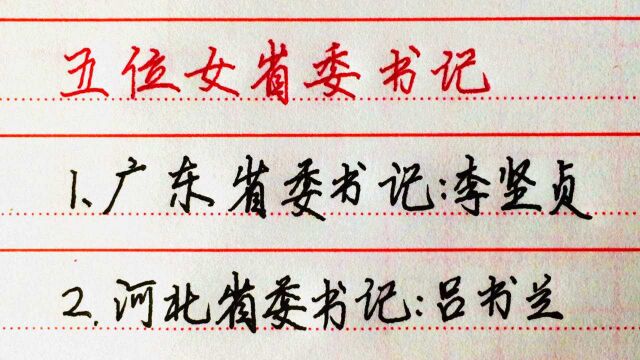 五位女省委书记
1.广东省委书记:李坚贞
2.河北省委书记:吕书兰